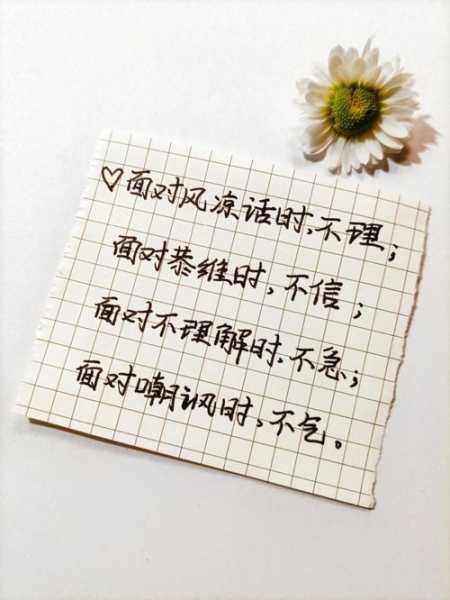 ♡面对风凉话时,不理;
面对恭维时,不信;
面对不理解时,不急;
面对嘲讽时,不气。